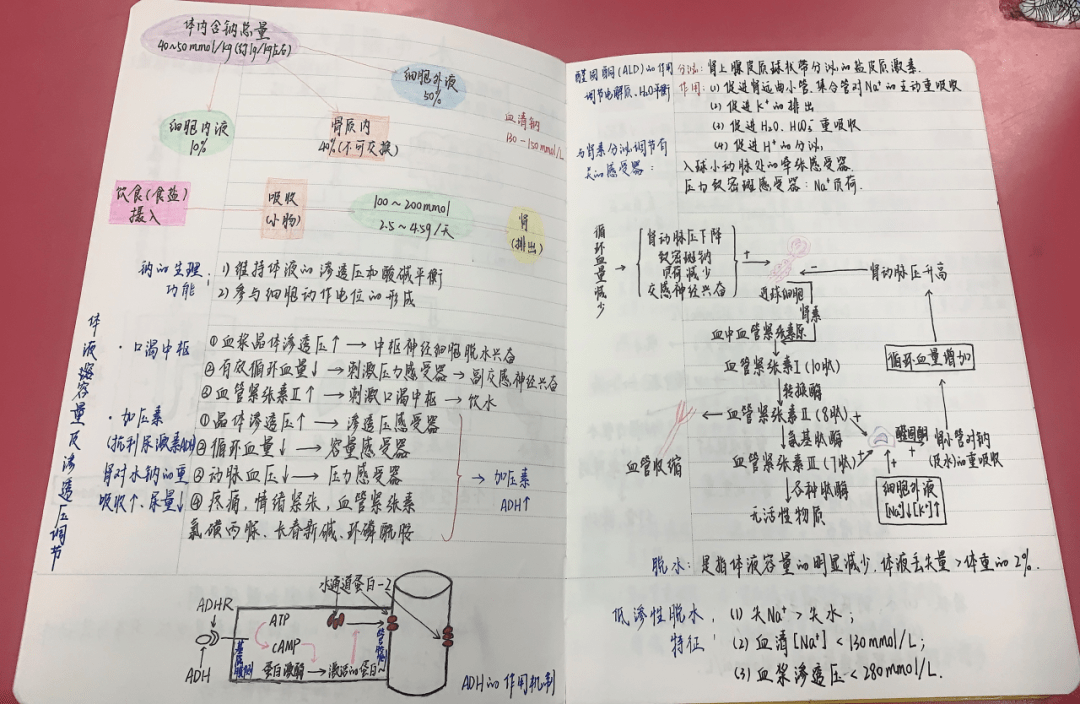 体内含钠总量
40~50mmol/kg(约1g/kg左右)
细胞外液
50%
细胞内液
10%
骨质内
40%(不可交换)
血清钠
130-150mmol/L
饮食(食盐)
摄入
吸收
(小肠)
100~200mmol
2.5~4.5g/天
肾
(排出)
钠的生理
功能
1)维持体液的渗透压和酸碱平衡
2)参与细胞动作电位的形成
体液容量及渗透压调节
·口渴中枢
①血浆晶体渗透压↑→中枢神经细胞脱水兴奋
②有效循环血量↓→刺激压力感受器→副交感神经兴奋
③血管紧张素Ⅱ↑→刺激口渴中枢→饮水
·加压素
(抗利尿激素ADH)
肾对水钠的重
吸收↑、尿量↓
①晶体渗透压↑→渗透压感受器
②循环血量↓→容量感受器
③动脉血压↓→压力感受器
④疼痛,情绪紧张,血管紧张素
氯磺丙脲、长春新碱、环磷酰胺
→加压素
ADH↑
水通道蛋白-2
ADHR
ATP
cAMP
蛋白激酶→激活的蛋白~
ADH
ADH的作用机制
醛固酮(ALD)的作用
调节电解质、H₂O平衡
分泌:肾上腺皮质球状带分泌的盐皮质激素.
作用:(1)促进肾远曲小管、集合管对Na⁺的主动重吸收
(2)促进K⁺的排出
(3)促进H₂O、HCO₃⁻重吸收
(4)促进H⁺的分泌,
与肾素分泌调节有
关的感受器:
入球小动脉处的牵张感受器
压力致密斑感受器:Na⁺负荷.
循环血量减少
肾动脉压下降
致密斑钠
负荷减少
交感神经兴奋
+
-
肾动脉压升高
近球细胞
肾素
血中血管紧张素原
循环血量增加
血管紧张素Ⅰ(10肽)
转换酶
血管紧张素Ⅱ(8肽)
+
氨基肽酶
血管收缩
血管紧张素Ⅲ(7肽)
+
醛固酮
+
肾小管对钠
(及水)的重吸收
各种肽酶
细胞外液
[Na⁺]↓[K⁺]↑
无活性物质
脱水:是指体液容量的明显减少.体液丢失量>体重的2%.
低渗性脱水
特征:
(1)失Na⁺>失水;
(2)血清[Na⁺]<130mmol/L;
(3)血浆渗透压<280mmol/L.